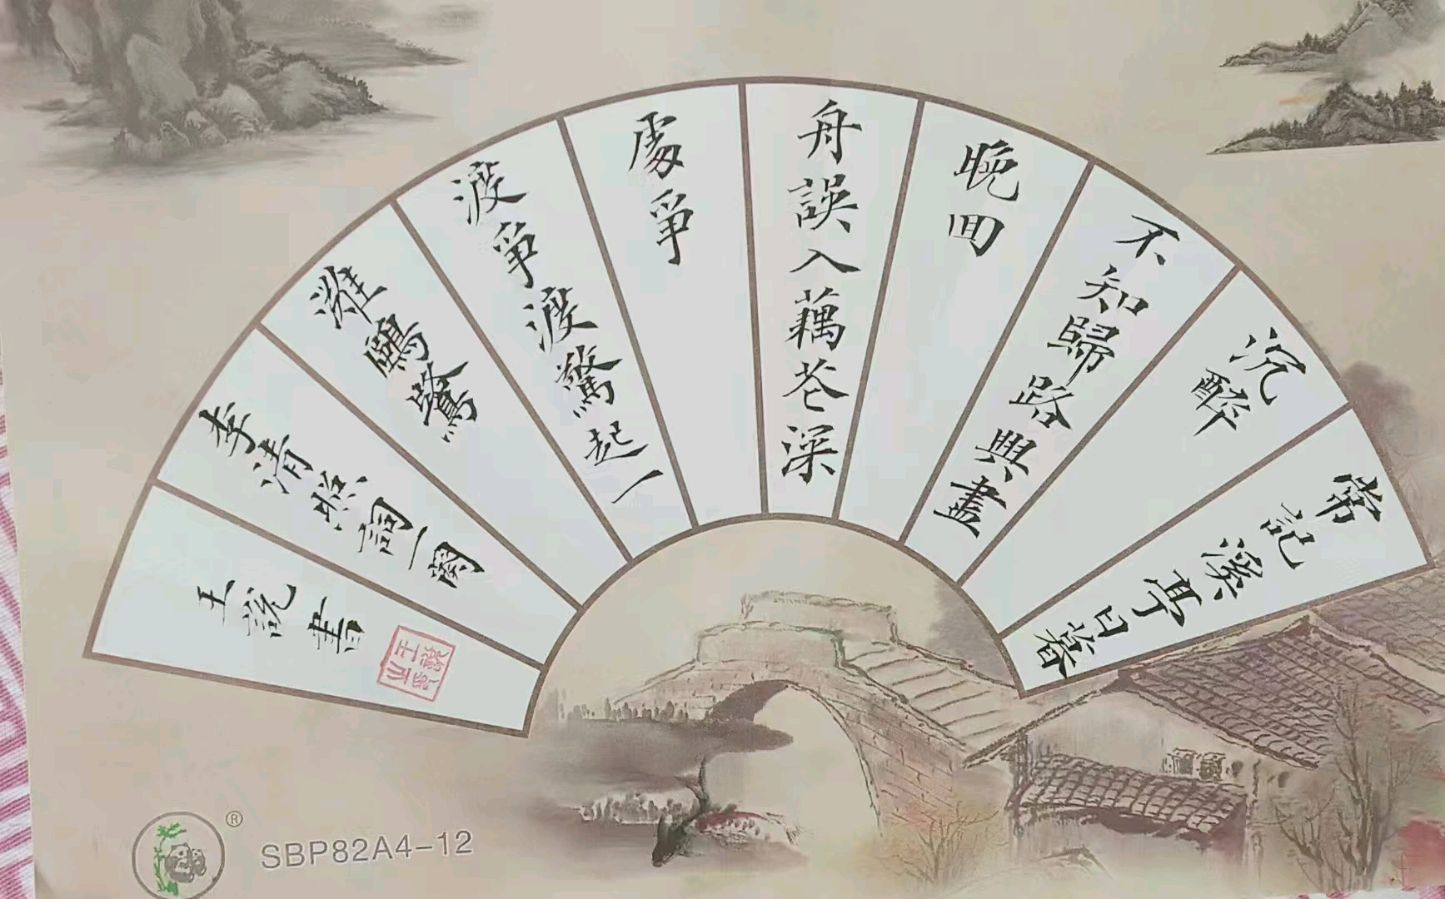 常記溪亭日暮
沉醉
不知歸路興盡
晚回
舟誤入藕花深
處爭
渡爭渡驚起一
灘鷗鷺
李清照詞一闋
王說書
®
SBP82A4-12